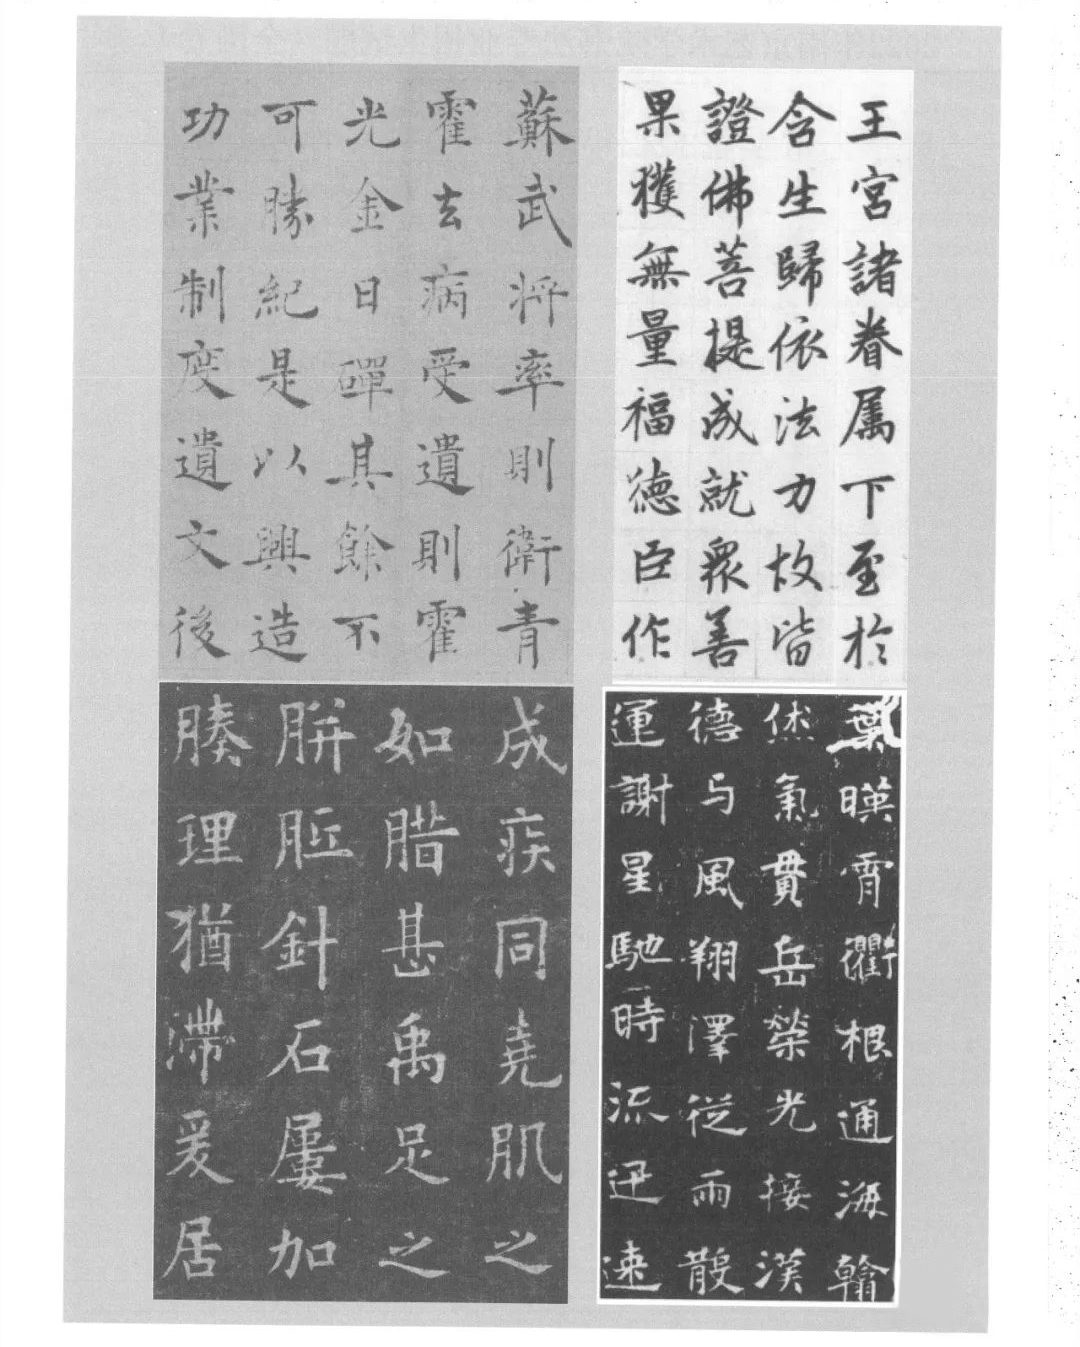 王宮諸眷属下至於
含生歸依法力故皆
證佛菩提成就衆善
果獲無量福德臣作
蘇武將率則衛青
霍去病受遺則霍
光金日磾其餘不
可勝紀是以興造
功業制度遺文後
葉暎霄衢根通海翰
恷氣貫岳榮光接漢
德与風翔澤從雨散
運謝星馳時流迅速
成疾同堯肌之
如腊甚禹足之
胼胝針石屢加
腠理猶滯爰居